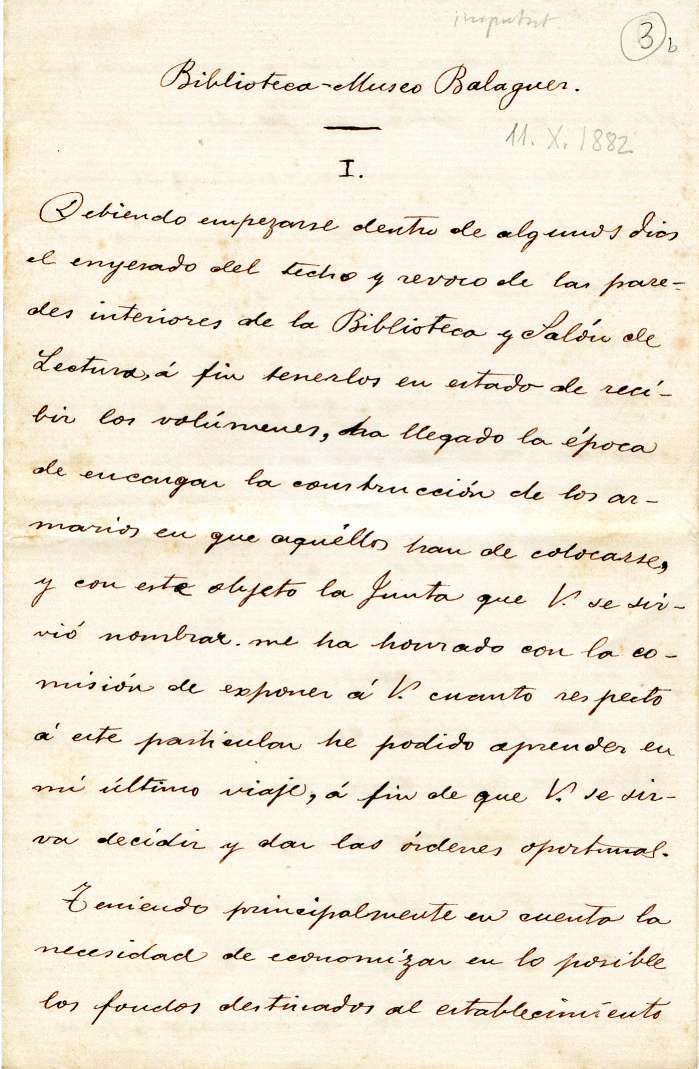 imprimt
3 b
Biblioteca-Museo Balaguer.
11. X. 1882
I.
Debiendo empezarse dentro de algunos dias
el enyesado del techo y revoco de las pare-
des interiores de la Biblioteca y Salón de
Lectura, á fin tenerlos en estado de reci-
bir los volúmenes, ha llegado la época
de encargar la construcción de los ar-
marios en que aquéllos han de colocarse,
y con este objeto la Junta que V. se sir-
vió nombrar me ha honrado con la co-
misión de exponer á V. cuanto respecto
á este particular he podido aprender en
mi último viaje, á fin de que V. se sir-
va decidir y dar las órdenes oportunas.
Teniendo principalmente en cuenta la
necesidad de economizar en lo posible
los fondos destinados al establecimiento